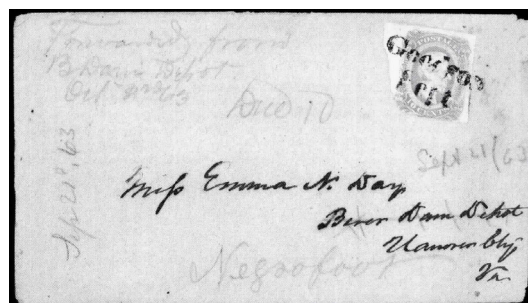 Forwarded from
B Dam Depot
Oct 2nd 63
Due 10
Goodson
Sept
Sept 21/63
Sep 21st, 63
Miss Emma N. Day
Bever Dam Depot
Hanover Cty
Va.
Negrofoot